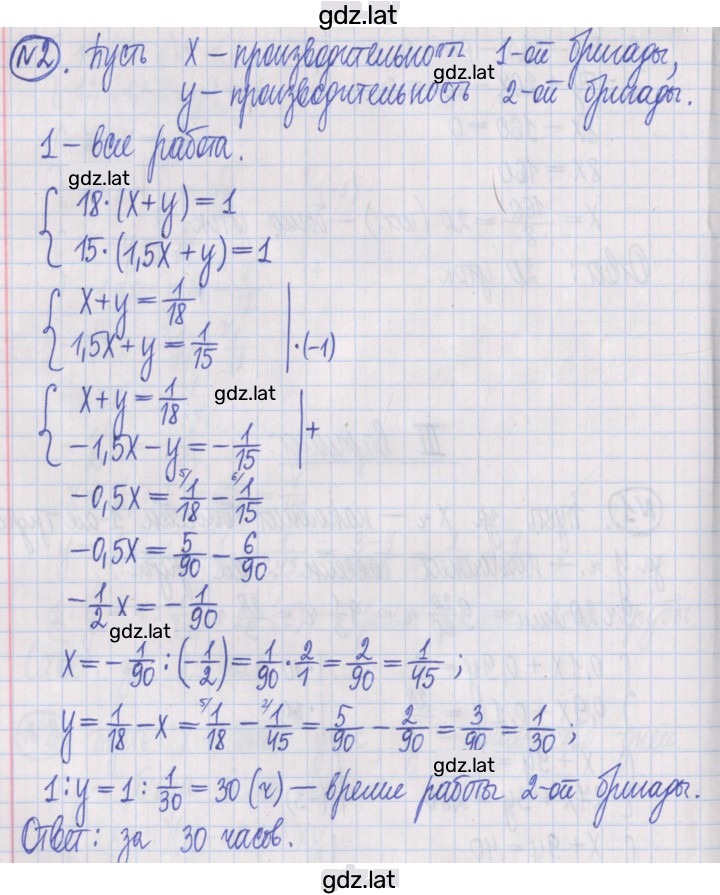 gdz.lat
№2. Пусть x – производительность 1-ой бригады,
gdz.lat
y – производительность 2-ой бригады.
1 – вся работа.
gdz.lat
18·(x+y)=1
15·(1,5x+y)=1
x+y=1/18
1,5x+y=1/15 | ·(-1)
x+y=1/18 gdz.lat
-1,5x-y=-1/15 | +
-0,5x= 5/ 1/18 - 6/ 1/15
-0,5x=5/90-6/90
-1/2x=-1/90
gdz.lat
x=-1/90:(-1/2)=1/90·2/1=2/90=1/45;
y=1/18-x= 5/ 1/18 - 2/ 1/45=5/90-2/90=3/90=1/30;
gdz.lat
1:y=1:1/30=30 (ч) – время работы 2-ой бригады.
Ответ: за 30 часов.
gdz.lat
gdz.lat